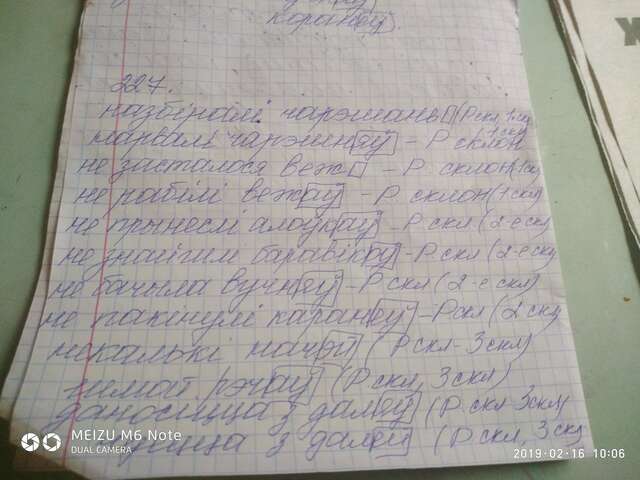 каранёў
227.
назбіралі чарэшань (Р скл, 1 скл
нарвалі чарэшняў - Р склон 1 скл
не засталося веж - Р. склон (1 ск
не рабілі вежаў - Р склон (1 скл)
не прынеслі алоўкаў - Р скл (2-е скл
не знайшлі баравікоў - Р скл (2-е ск
не бачыла вучняў - Р скл (2-е скл)
не пакінулі каранёў - Р скл (2 скл
некалькі начэй (Р скл - 3 скл)
рэчаў (Р скл, 3 скл)
даносіцца з далеў (Р. скл 3 скл)
з далей (Р скл, 3 скл
MEIZU M6 Note
DUAL CAMERA
2019-02-16 10:06